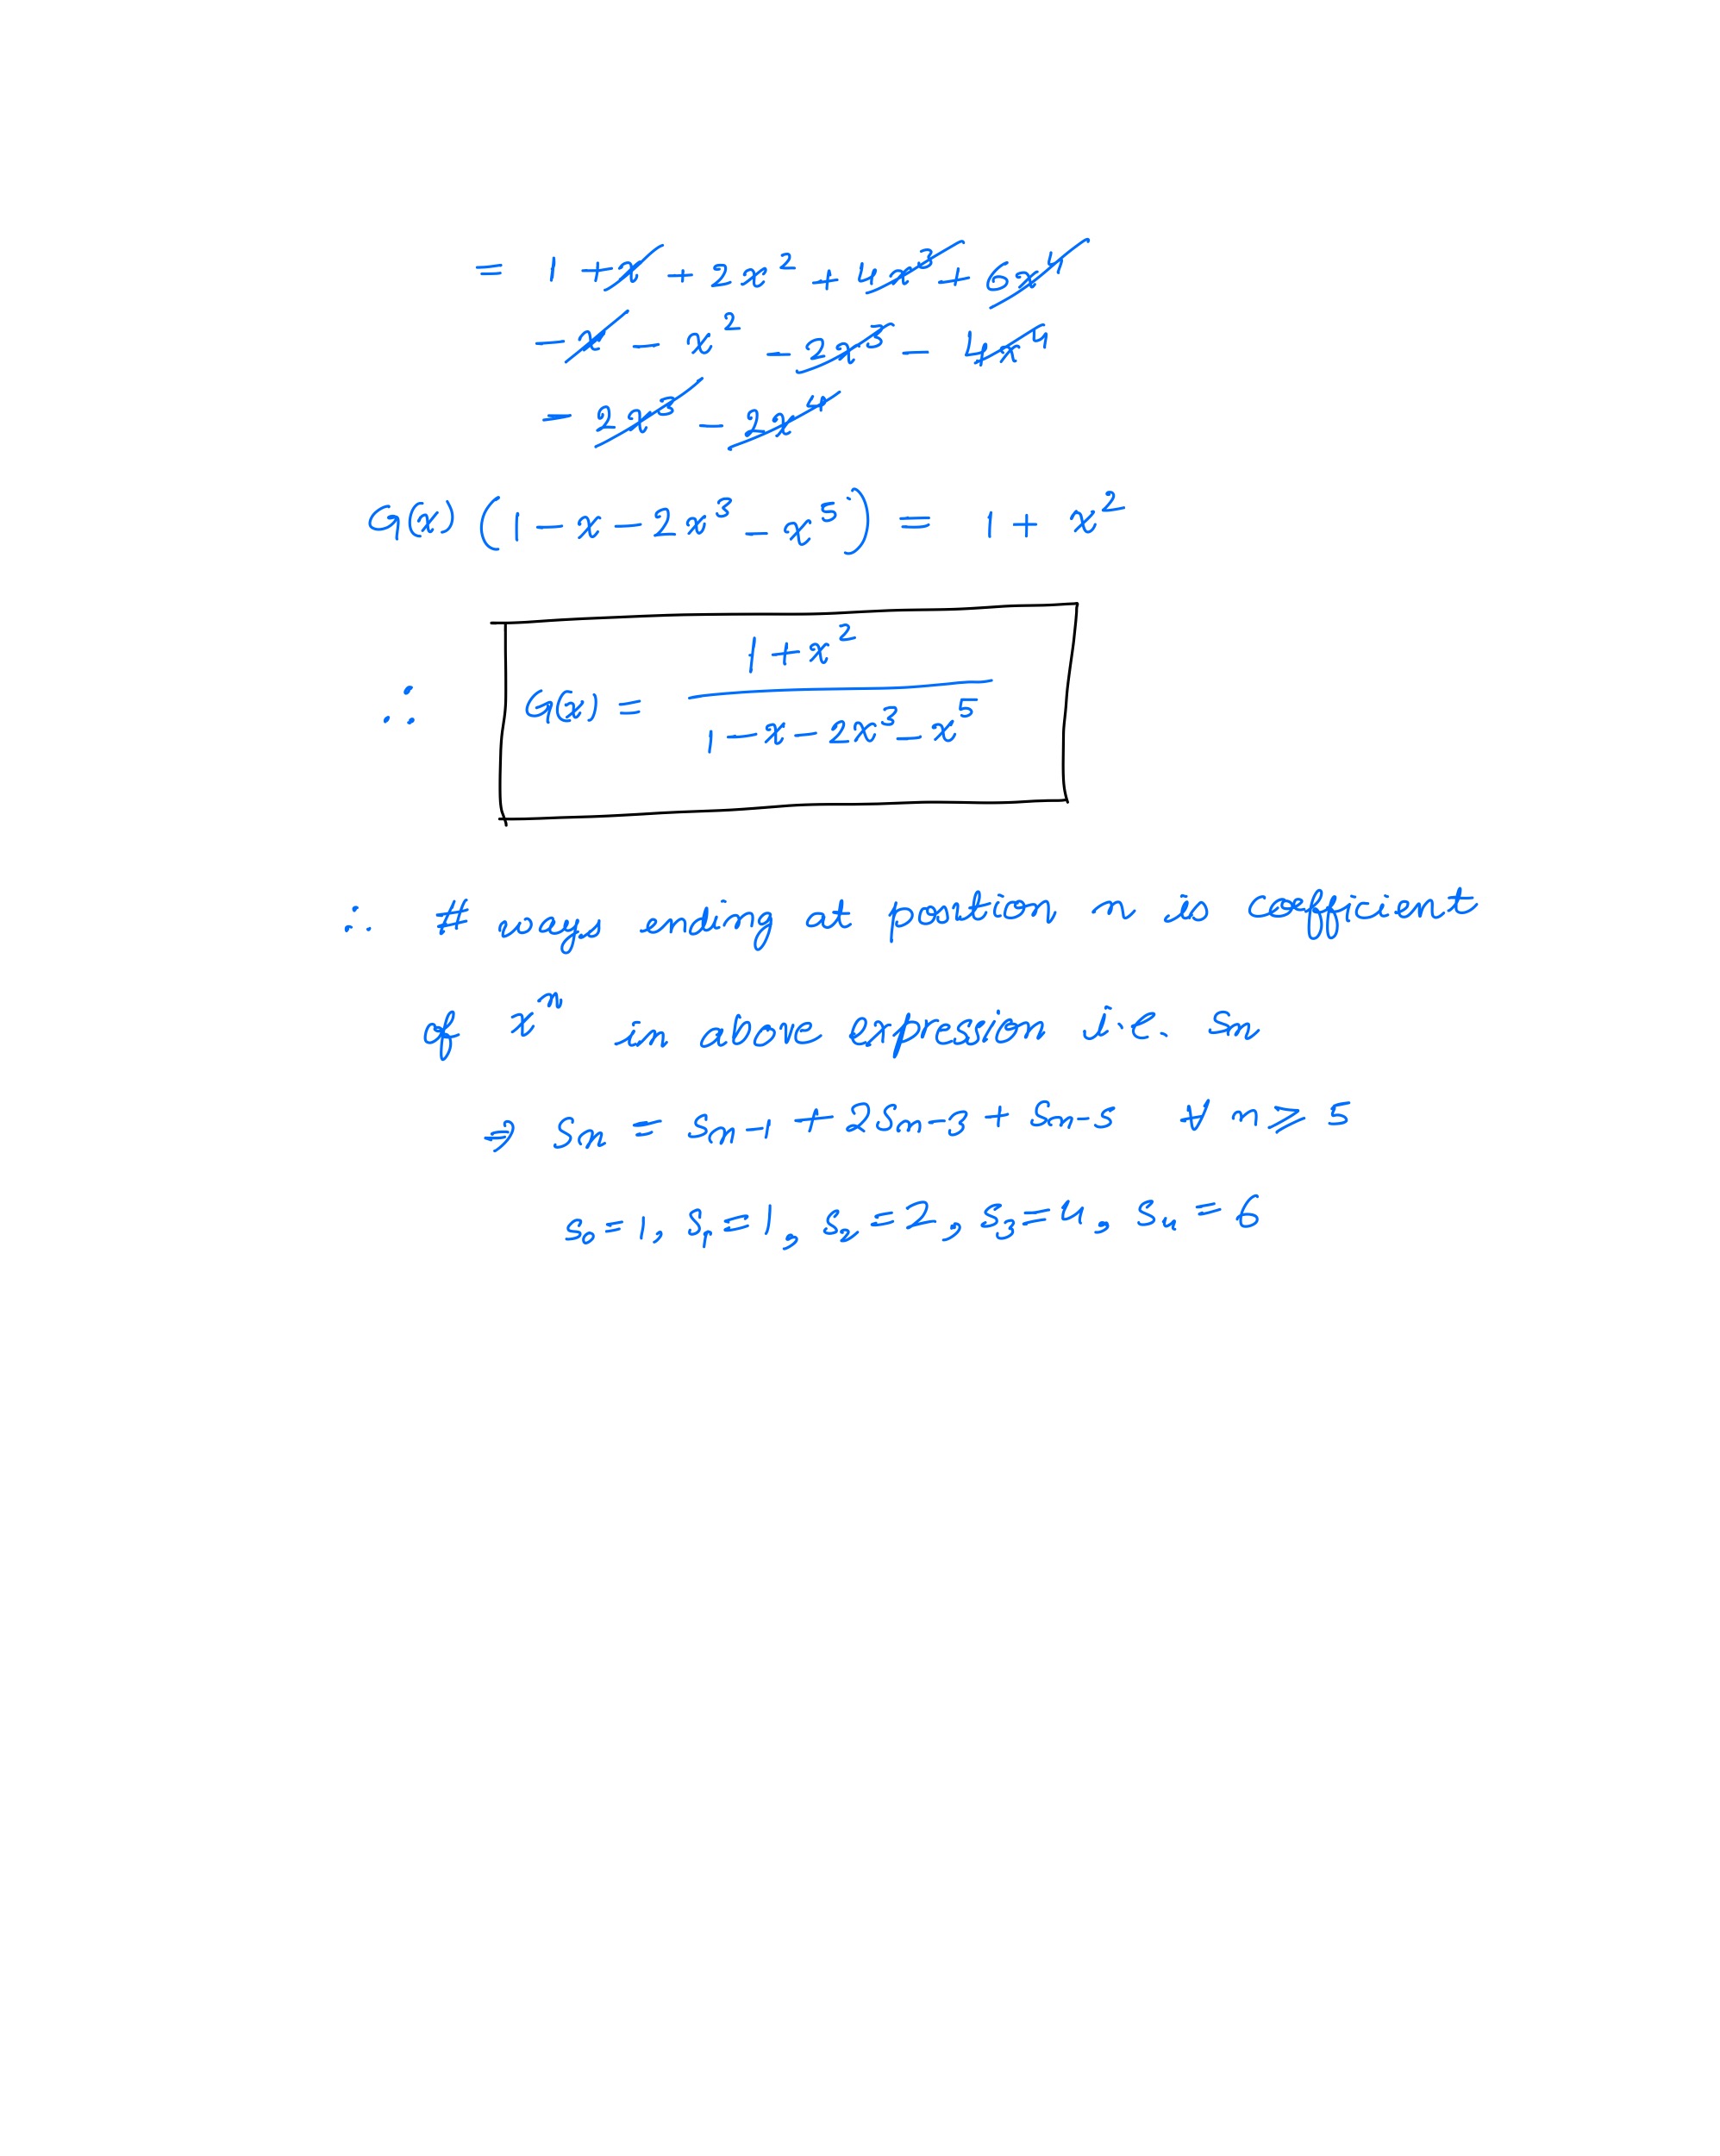 = 1 + x + 2x² + 4x³ + 6x⁴
- x - x² - 2x³ - 4x⁴
- 2x³ - 2x⁴
G(x) (1 - x - 2x³ - x⁵) = 1 + x²
∴ G(x) = (1 + x²) / (1 - x - 2x³ - x⁵)
∴ # ways ending at position n is coefficient
of xⁿ in above expression i.e. sₙ
⇒ sₙ = sₙ₋₁ + 2sₙ₋₃ + sₙ₋₅ ∀ n ⩾ 5
s₀ = 1, s₁ = 1, s₂ = 2, s₃ = 4, s₄ = 6